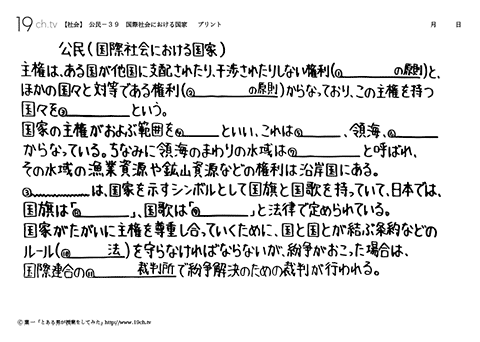 19ch.tv 【社会】 公民－39 国際社会における国家 プリント 月 日
公民(国際社会における国家)
主権は、ある国が他国に支配されたり、干渉されたりしない権利( の原則)と、
ほかの国々と対等である権利( の原則)からなっており、この主権を持つ
国々を という。
国家の主権がおよぶ範囲を といい、これは 、領海、
からなっている。ちなみに領海のまわりの水域は と呼ばれ、
その水域の漁業資源や鉱山資源などの権利は沿岸国にある。
は、国家を示すシンボルとして国旗と国歌を持っていて、日本では、
国旗は「 」、国歌は「 」と法律で定められている。
国家がたがいに主権を尊重し合っていくために、国と国とが結ぶ条約などの
ルール( 法)を守らなければならないが、紛争がおこった場合は、
国際連合の 裁判所で紛争解決のための裁判が行われる。
© 葉一「とある男が授業をしてみた」http://www.19ch.tv